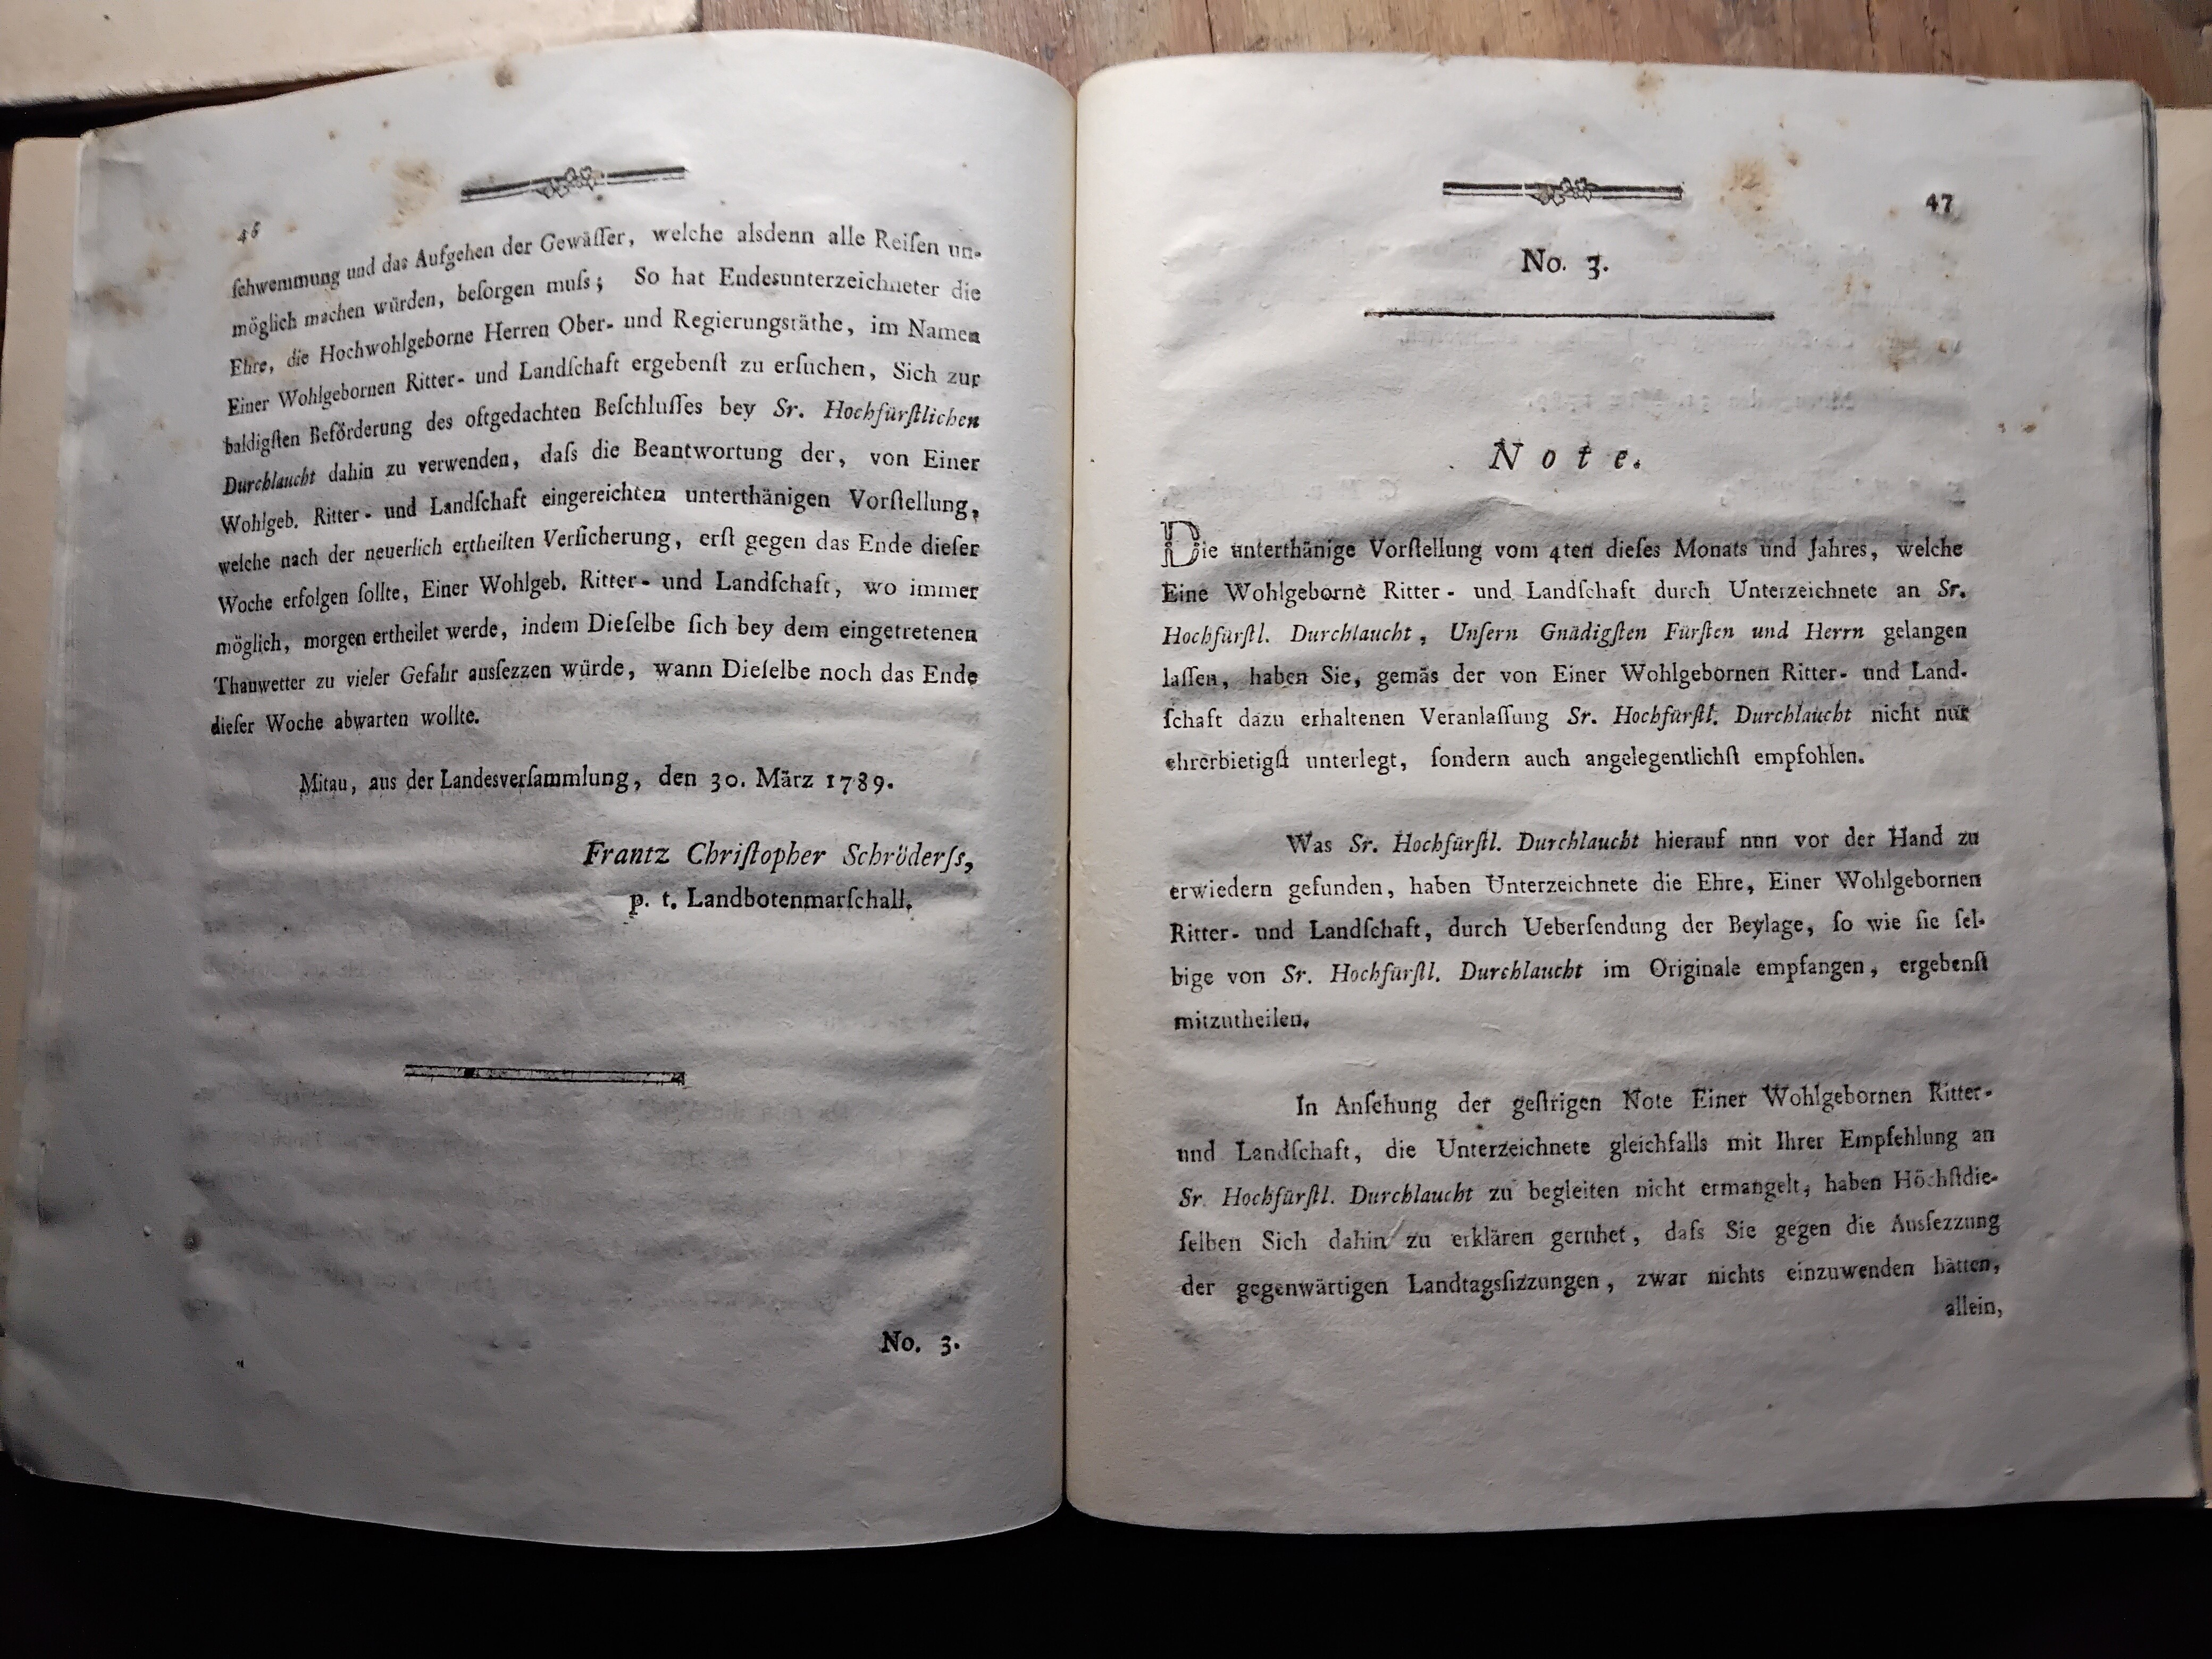 46
ſchwemmung und das Aufgehen der Gewäſſer, welche alsdenn alle Reiſen un-
möglich machen würden, beſorgen muſs; So hat Endesunterzeichneter die
Ehre, die Hochwohlgeborne Herren Ober- und Regierungsräthe, im Namen
Einer Wohlgebornen Ritter- und Landſchaft ergebenſt zu erſuchen, Sich zur
baldigſten Beförderung des oftgedachten Beſchluſſes bey Sr. Hochfürſtlichen
Durchlaucht dahin zu verwenden, daſs die Beantwortung der, von Einer
Wohlgeb. Ritter- und Landſchaft eingereichten unterthänigen Vorſtellung,
welche nach der neuerlich ertheilten Verſicherung, erſt gegen das Ende dieſer
Woche erfolgen ſollte, Einer Wohlgeb. Ritter- und Landſchaft, wo immer
möglich, morgen ertheilet werde, indem Dieſelbe ſich bey dem eingetretenen
Thauwetter zu vieler Gefahr ausſezzen würde, wann Dieſelbe noch das Ende
dieſer Woche abwarten wollte.
Mitau, aus der Landesverſammlung, den 30. März 1789.
Frantz Chriſtopher Schröderſs,
p. t. Landbotenmarſchall.
No. 3.
47
No. 3.
Note.
Die unterthänige Vorſtellung vom 4ten dieſes Monats und Jahres, welche
Eine Wohlgeborne Ritter- und Landſchaft durch Unterzeichnete an Sr.
Hochfürſtl. Durchlaucht, Unſern Gnädigſten Fürſten und Herrn gelangen
laſſen, haben Sie, gemäs der von Einer Wohlgebornen Ritter- und Land-
ſchaft dazu erhaltenen Veranlaſſung Sr. Hochfürſtl. Durchlaucht nicht nur
ehrerbietigſt unterlegt, ſondern auch angelegentlichſt empfohlen.
Was Sr. Hochfürſtl. Durchlaucht hierauf nun vor der Hand zu
erwiedern gefunden, haben Unterzeichnete die Ehre, Einer Wohlgebornen
Ritter- und Landſchaft, durch Ueberſendung der Beylage, ſo wie ſie ſel-
bige von Sr. Hochfürſtl. Durchlaucht im Originale empfangen, ergebenſt
mitzutheilen.
In Anſehung der geſtrigen Note Einer Wohlgebornen Ritter-
und Landſchaft, die Unterzeichnete gleichfalls mit Ihrer Empfehlung an
Sr. Hochfürſtl. Durchlaucht zu begleiten nicht ermangelt, haben Höchſtdie-
ſelben Sich dahin zu erklären geruhet, daſs Sie gegen die Ausſezzung
der gegenwärtigen Landtagsſizzungen, zwar nichts einzuwenden hätten,
allein,